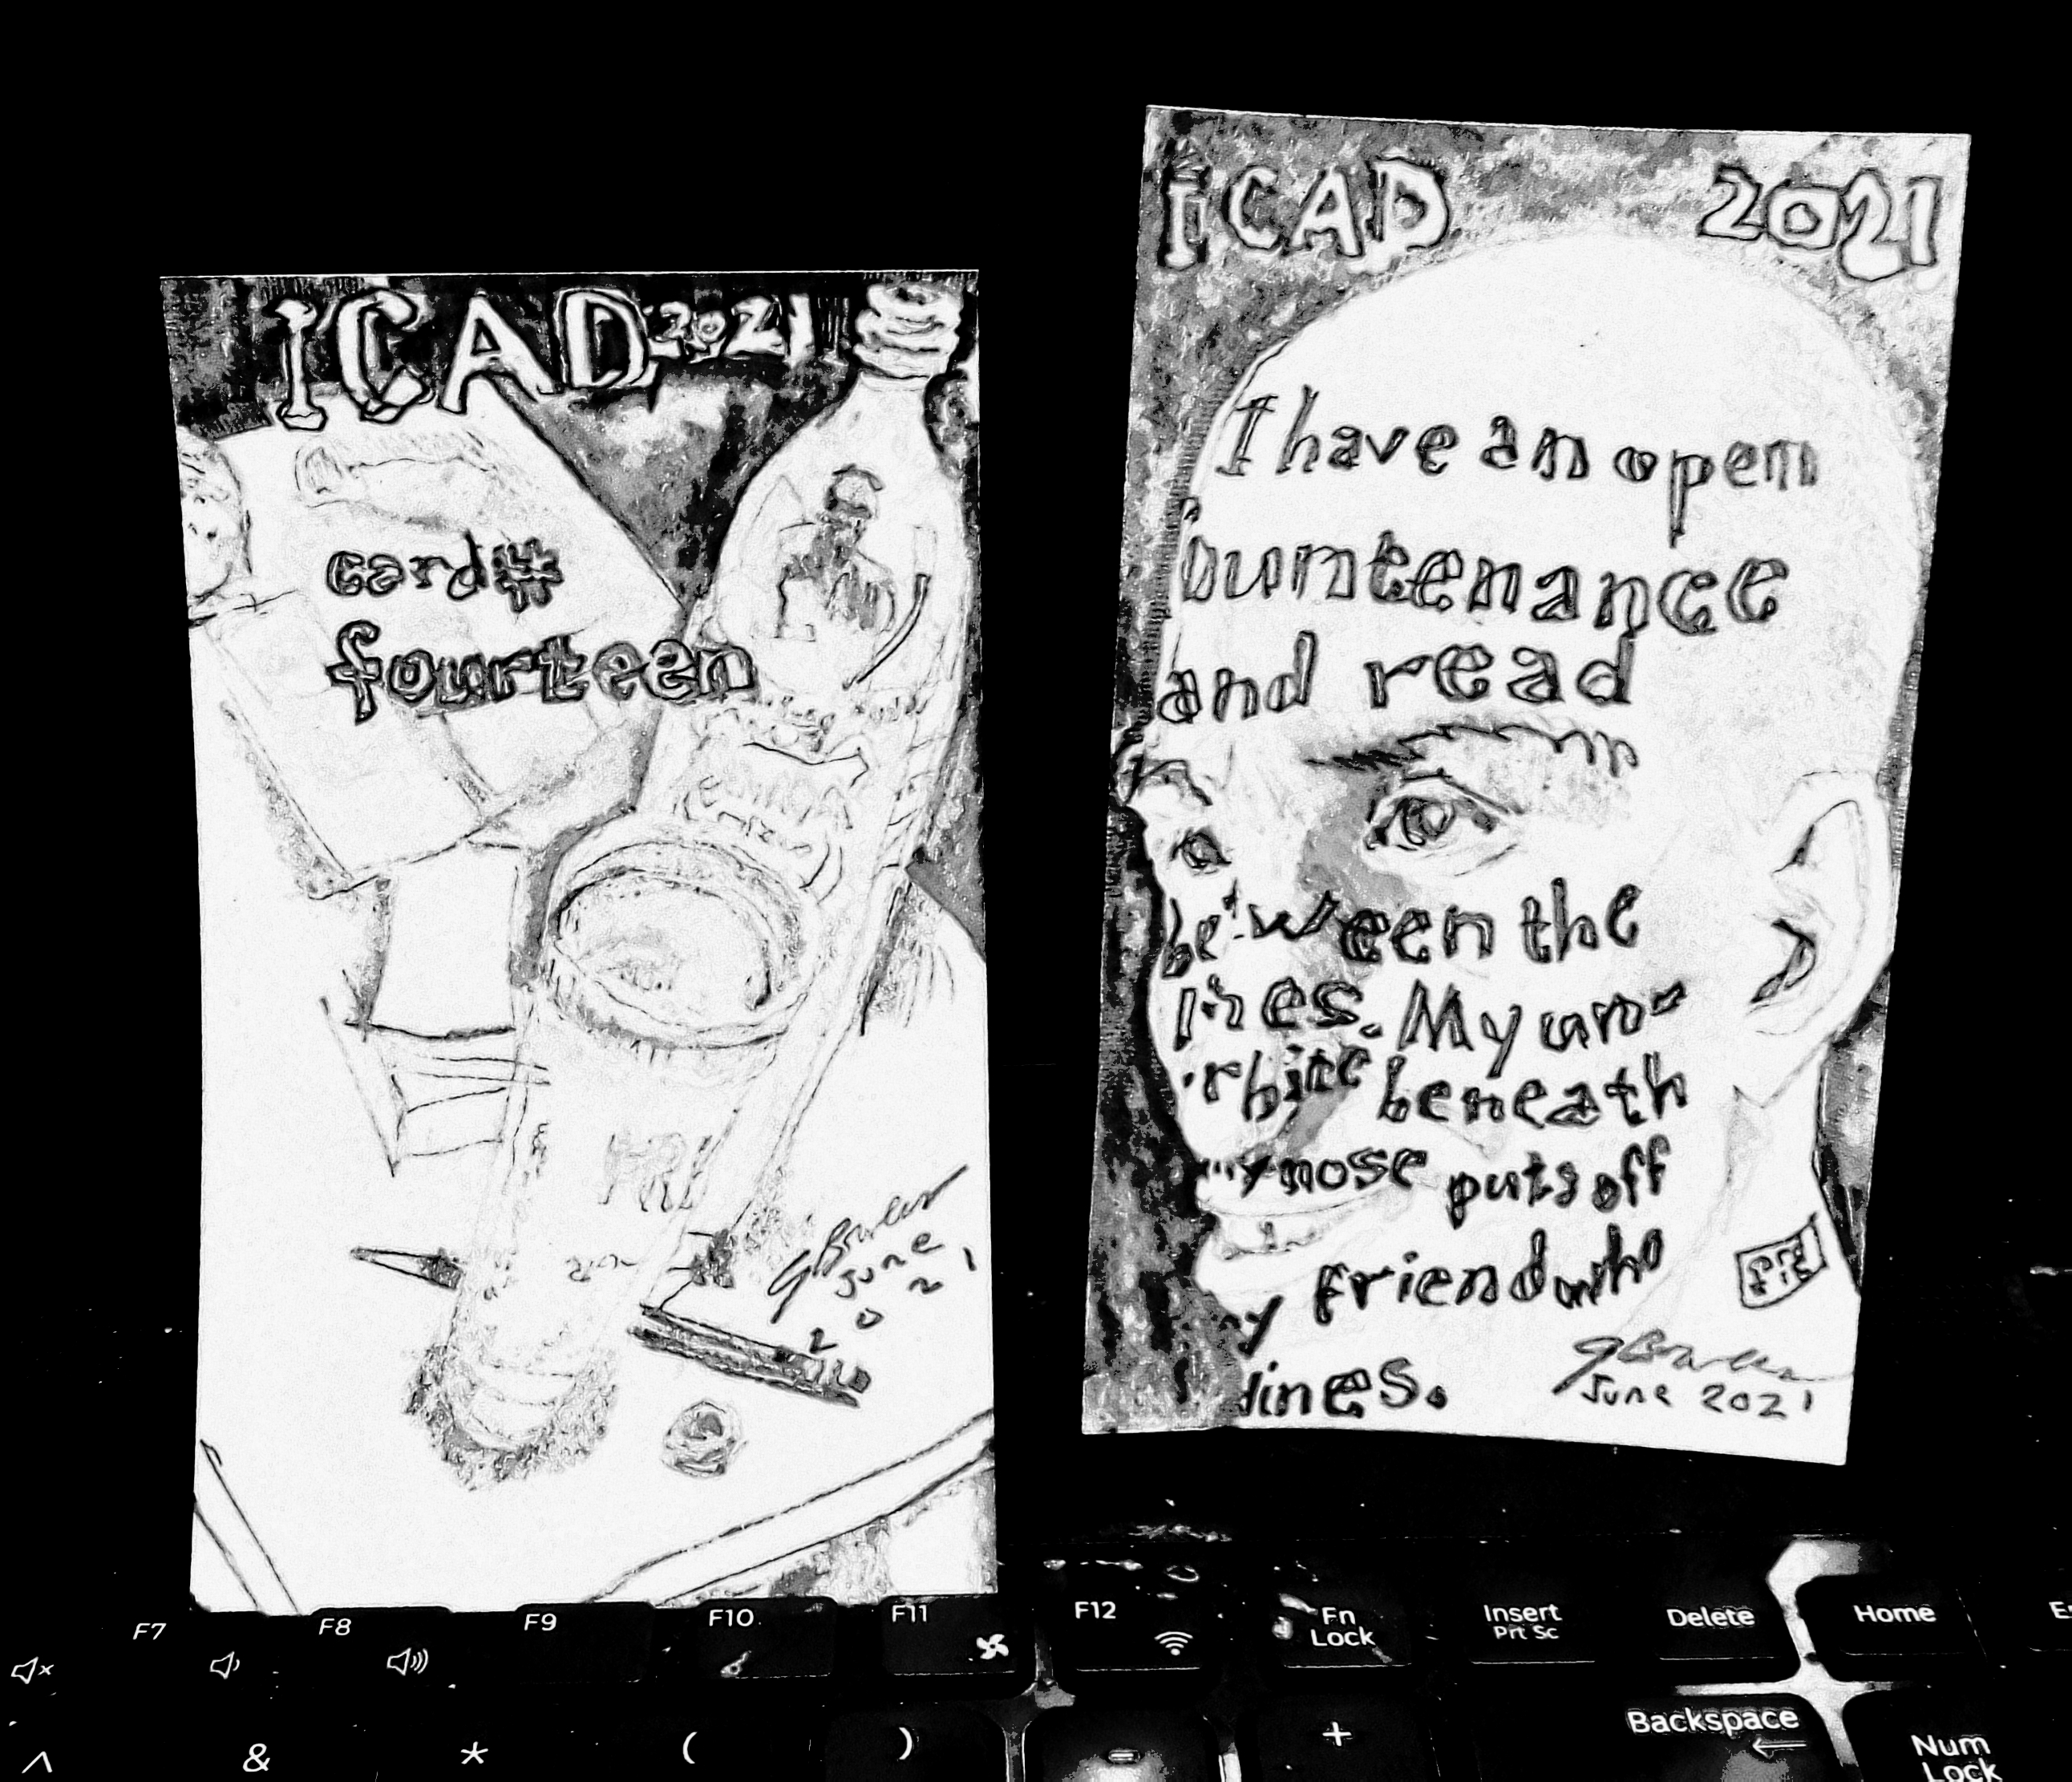 ICAD 2021
card#
fourteen
June
2021
ICAD 2021
I have an open
ountenance
and read
between the
lines. My un-
beneath
nose puts off
y friend who
dines.
June 2021
F7 F8 F9 F10 F11 F12 Fn Lock Insert Prt Sc Delete Home
^ & * ( ) - + Backspace Num Lock